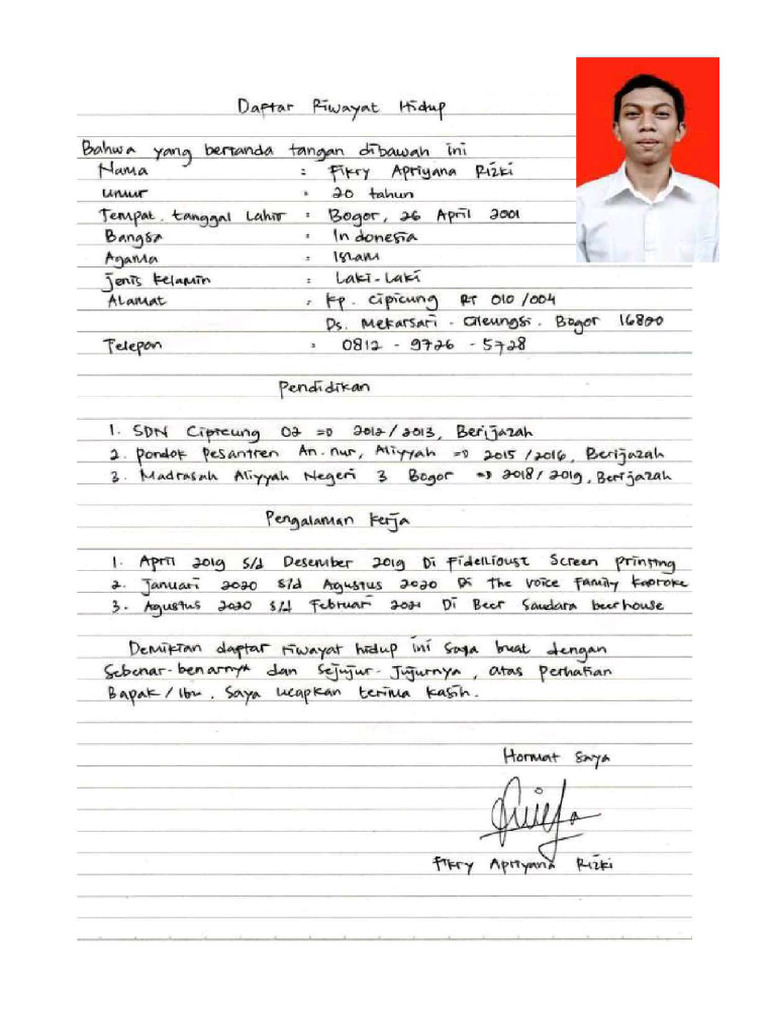 Daftar Riwayat Hidup
Bahwa yang bertanda tangan dibawah ini
Nama : Fikry Apriyana Rizki
Umur : 20 tahun
Tempat, tanggal Lahir : Bogor, 26 April 2001
Bangsa : Indonesia
Agama : Islam
Jenis Kelamin : Laki-Laki
Alamat : Kp. Cipicung RT 010/004
Ds. Mekarsari - Cileungsi. Bogor 16820
Telepon : 0812 - 9726 - 5728
Pendidikan
1. SDN Cipicung 02 => 2012/2013, Berijazah
2. Pondok Pesantren An-nur, Aliyyah => 2015/2016, Berijazah
3. Madrasah Aliyyah Negeri 3 Bogor => 2018/2019, Berijazah
Pengalaman Kerja
1. April 2019 s/d Desember 2019 Di Screen Printing
2. Januari 2020 s/d Agustus 2020 Di The Voice Family
3. Agustus 2020 s/d Februari 2021 Di Beer Saudara beerhouse
Demikian daftar riwayat hidup ini saya buat dengan
Sebenar-benarnya dan Sejujur-Jujurnya, atas perhatian
Bapak/Ibu. Saya ucapkan terima kasih.
Hormat Saya
Fikry Apriyana Rizki